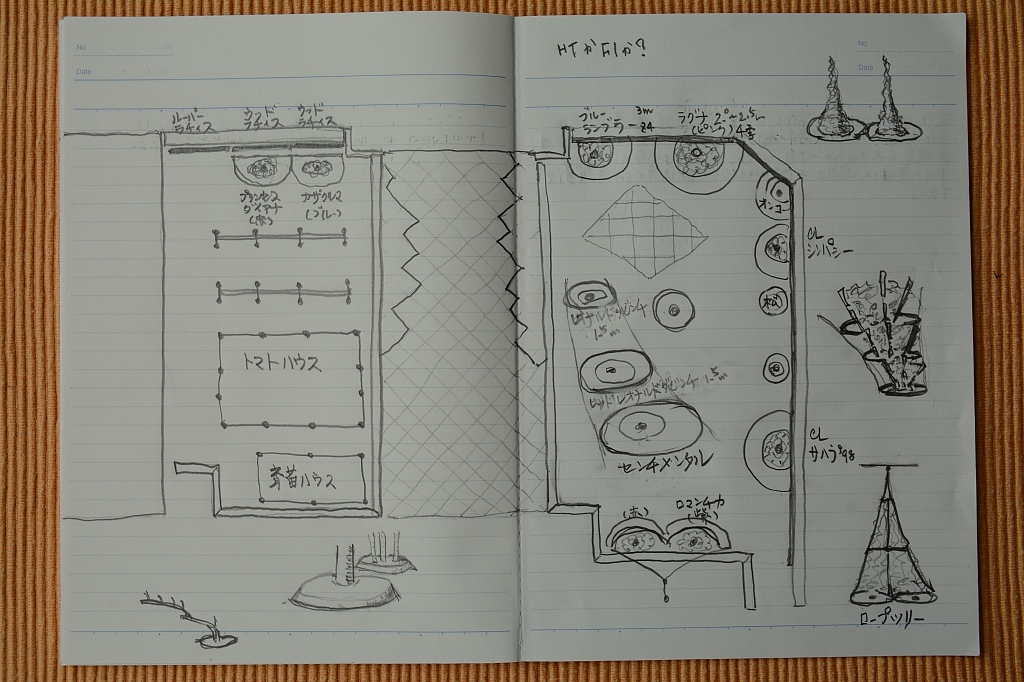 No.
Date
ルーバー
ラチィス
ウッド
ラチィス
ウッド
ラチィス
プリンセス
ダイアナ
(赤)
カザグルマ
(ブルー)
トマトハウス
育苗ハウス
No.
Date
HTかFlか?
ブルー
ランブラー
3m
84
ラグナ 2.0~2.5m
(ピンク) 4季
オンコー
CL
シンパシー
松
レオナルドダビンチ
1.5m
レッドレオナルドダビンチ 1.5m
センチメンタル
CL
サハラ'98
(赤)
ロマンチカ
(紫)
ロープツリー